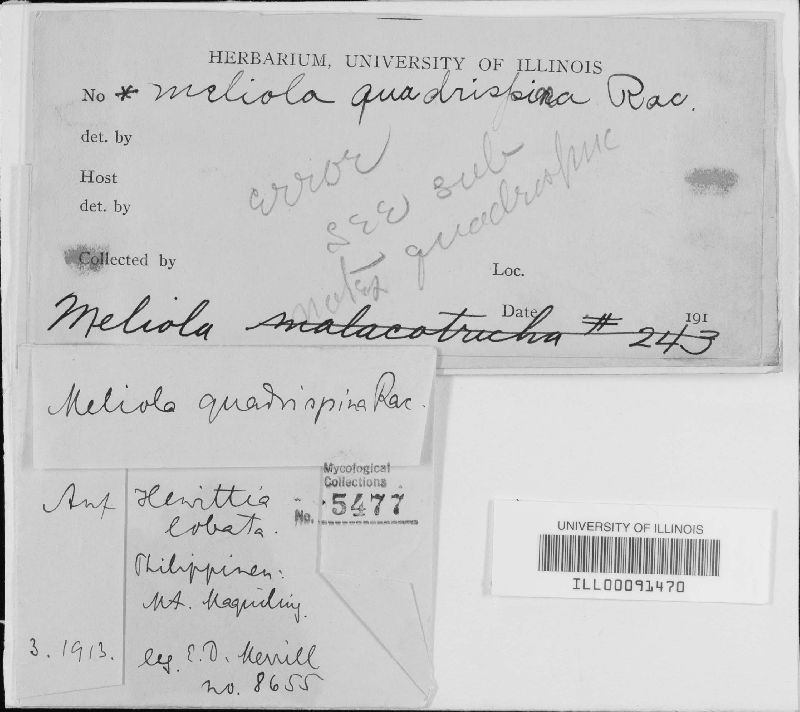 HERBARIUM, UNIVERSITY OF ILLINOIS
No * Meliola quadrispina Rac.
det. by
Host
det. by
error
see sub
notes quadrispinae
Collected by
Loc.
Date 191
Meliola malacotricha # 243
Meliola quadrispina Rac.
Auf Hewittia
lobata.
Philippinen:
Mt. Maquiling.
3. 1913.
leg. E.D. Merrill
no. 8655
Mycological
Collections
No. 5477
UNIVERSITY OF ILLINOIS
ILL00091470